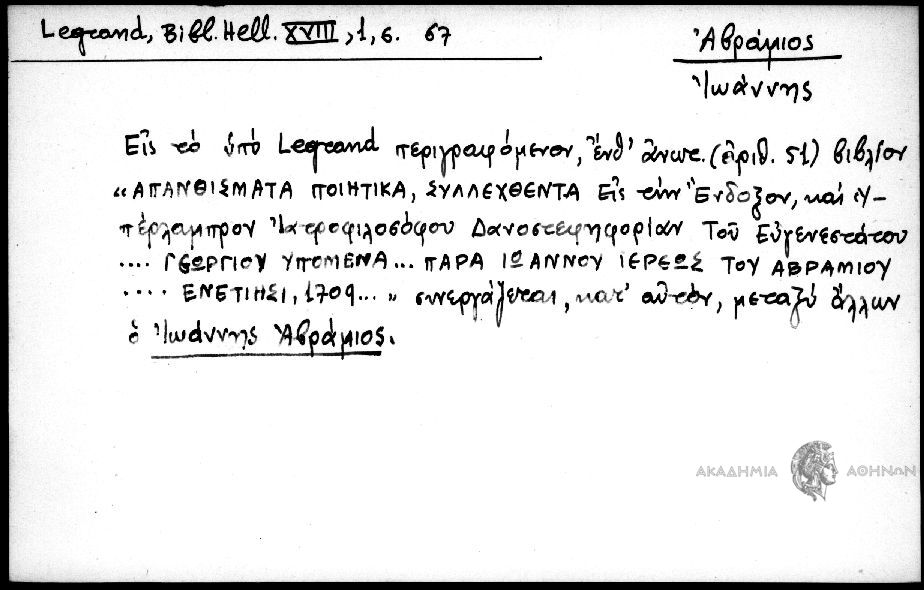 Legrand, Bibl. Hell. XVIII, 1, σ. 67
Ἀβράμιος
Ἰωάννης
Εἰς τὸ ὑπὸ Legrand περιγραφόμενον, ἔνθ' ἄνωτ. (ἀριθ. 51) βιβλίον
"ΑΠΑΝΘΙΣΜΑΤΑ ΠΟΙΗΤΙΚΑ, ΣΥΛΛΕΧΘΕΝΤΑ Εἰς τὴν Ἔνδοξον, καὶ ὑ-
πέρλαμπρον Ἰατροφιλοσόφου Δανοστεφηφορίαν Τοῦ Εὐγενεστάτου
.... ΓΕΩΡΓΙΟΥ ΥΠΟΜΕΝΑ... ΠΑΡΑ ΙΩΑΝΝΟΥ ΙΕΡΕΩΣ ΤΟΥ ΑΒΡΑΜΙΟΥ
.... ΕΝΕΤΙΗΣΙ, 1709..." συνεργάζεται, κατ' αὐτὸν, μεταξὺ ἄλλων
ὁ Ἰωάννης Ἀβράμιος.
ΑΚΑΔΗΜΙΑ ΑΘΗΝΩΝ